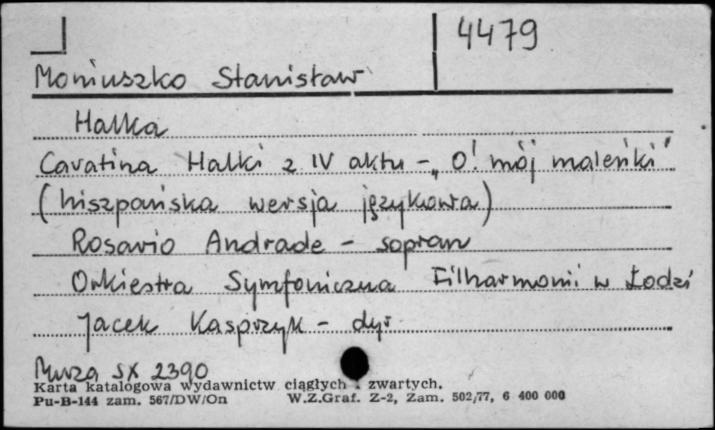 4479
Moniuszko Stanisław
Halka
Cavatina Halki z IV aktu - „O! mój maleńki"
(hiszpańska wersja językowa)
Rosario Andrade - sopran
Orkiestra Symfoniczna Filharmonii w Łodzi
Jacek Kasprzyk - dyr
Muza SX 2390
Karta katalogowa wydawnictw ciągłych i zwartych.
Pu-B-144 zam. 567/DW/On W.Z.Graf. Z-2, Zam. 502/77, 6 400 000